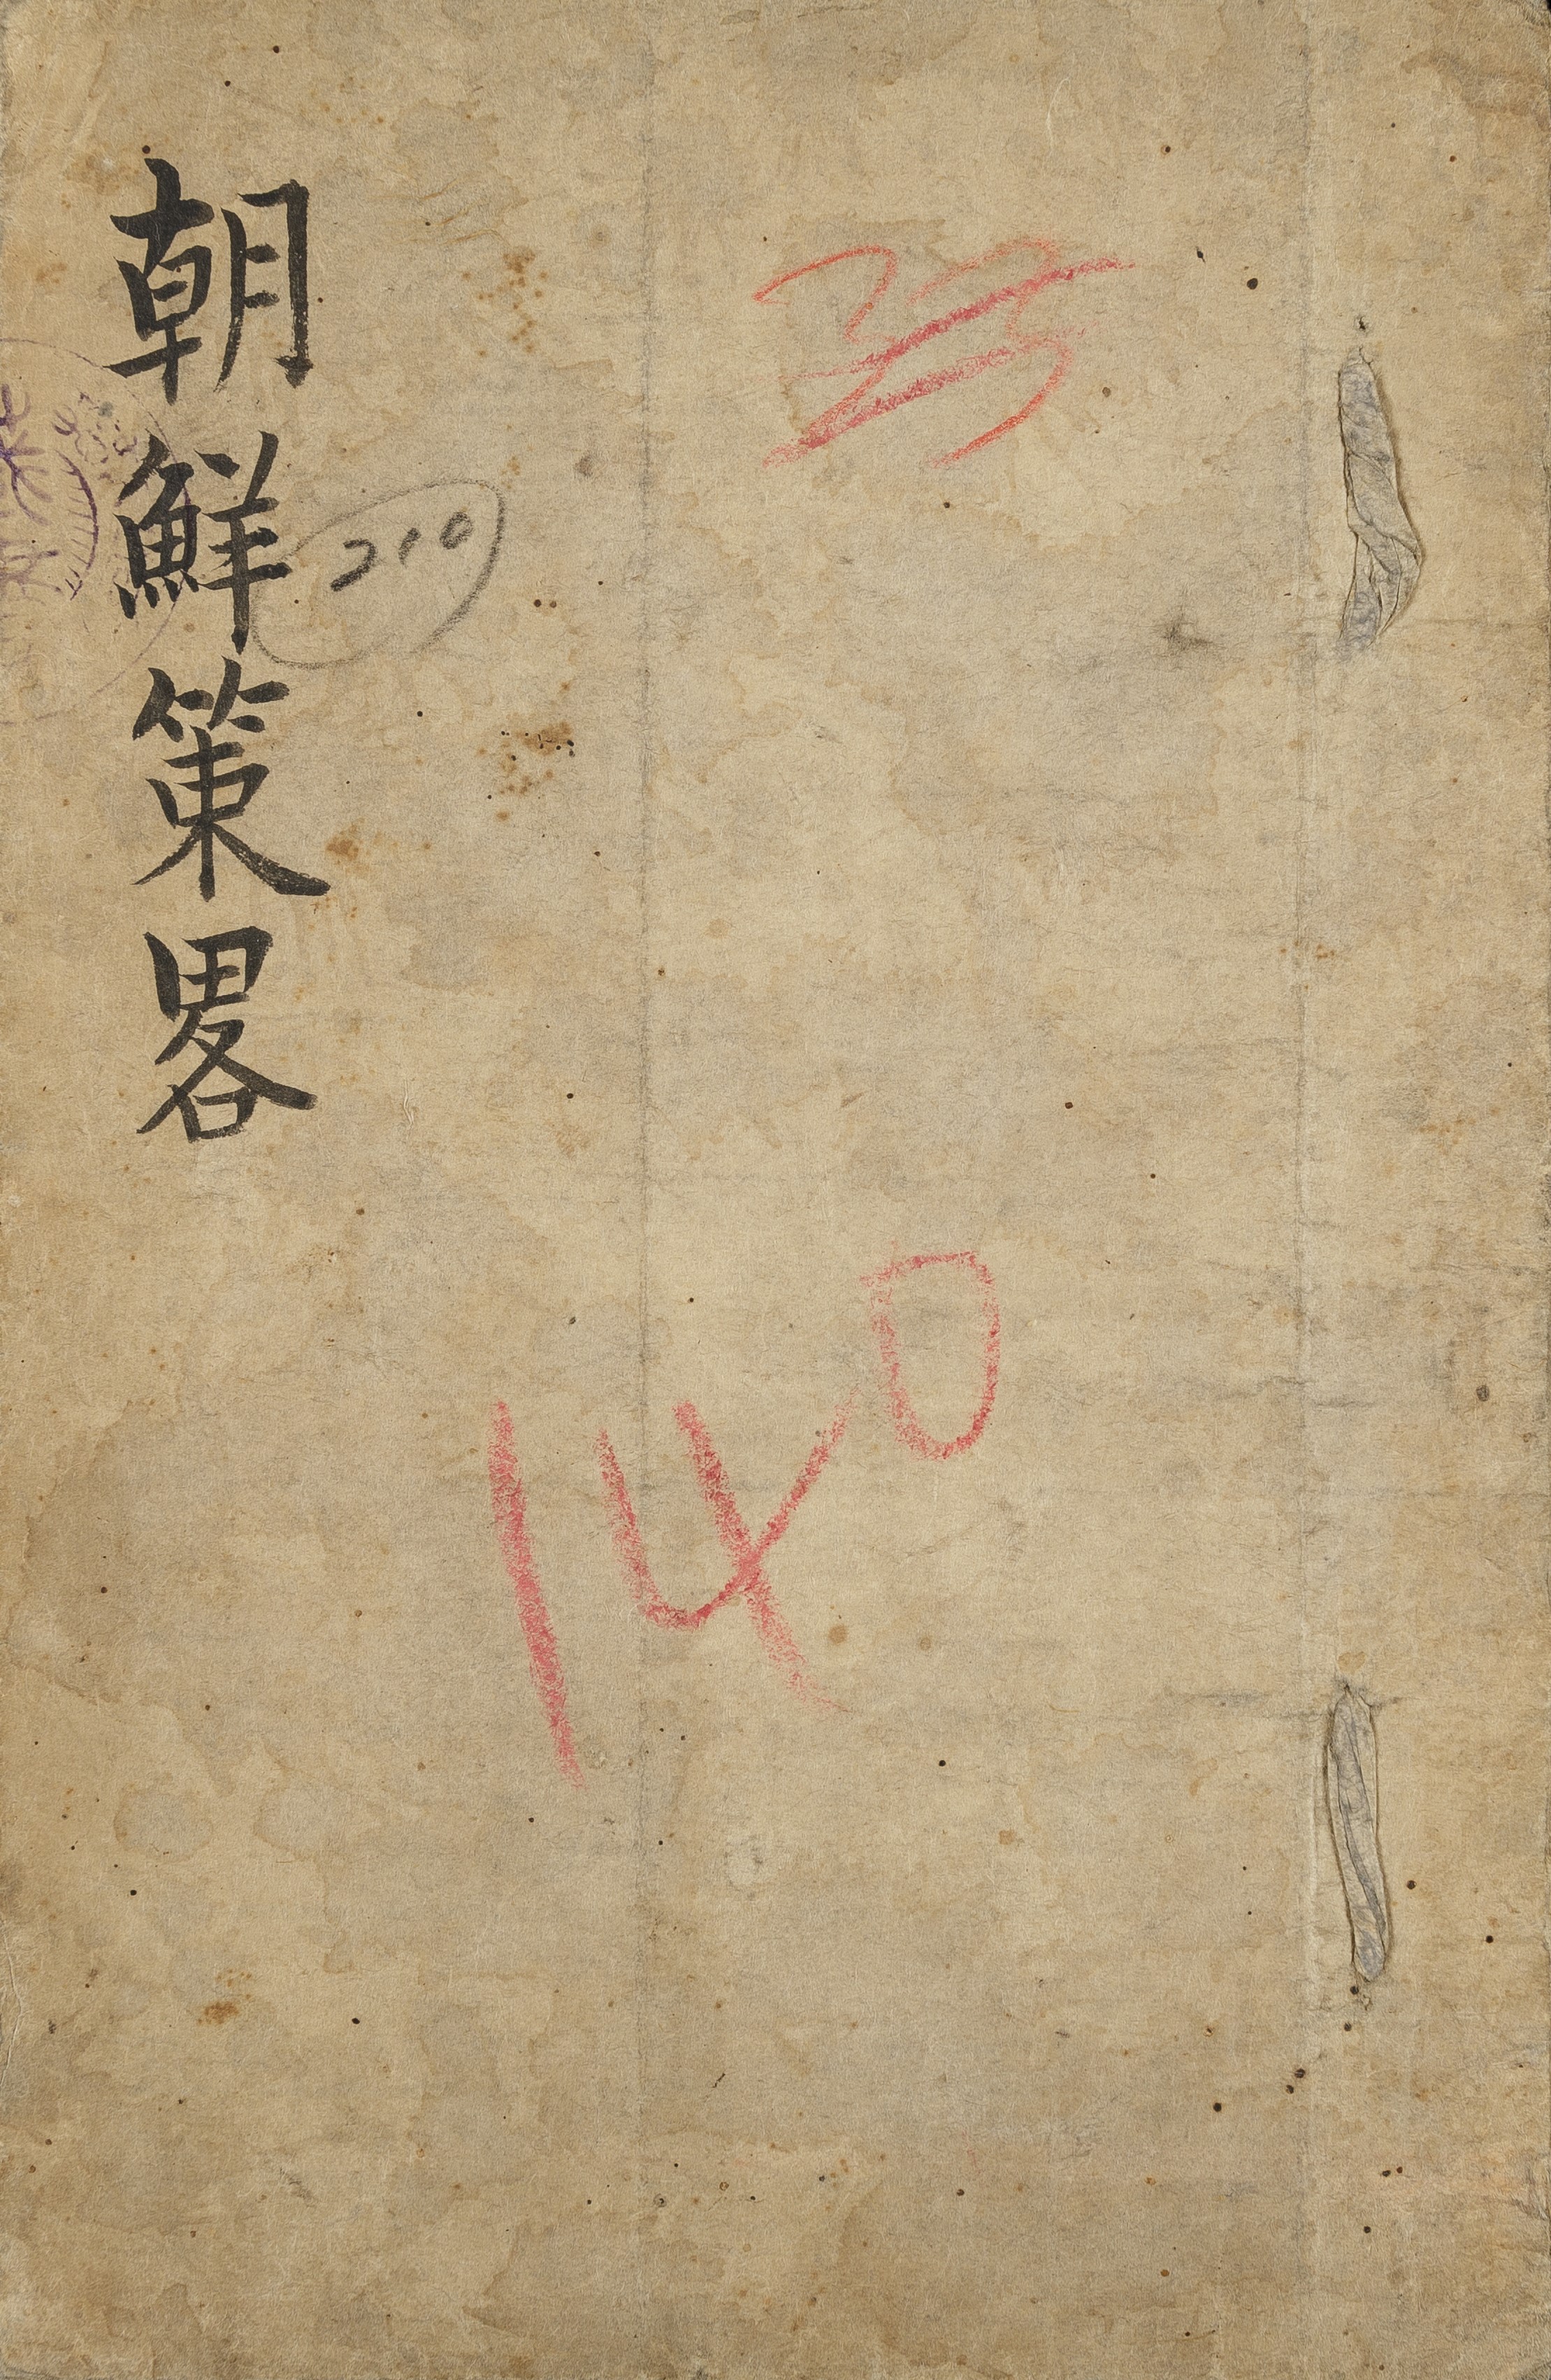 朝鮮策畧
210
33
140